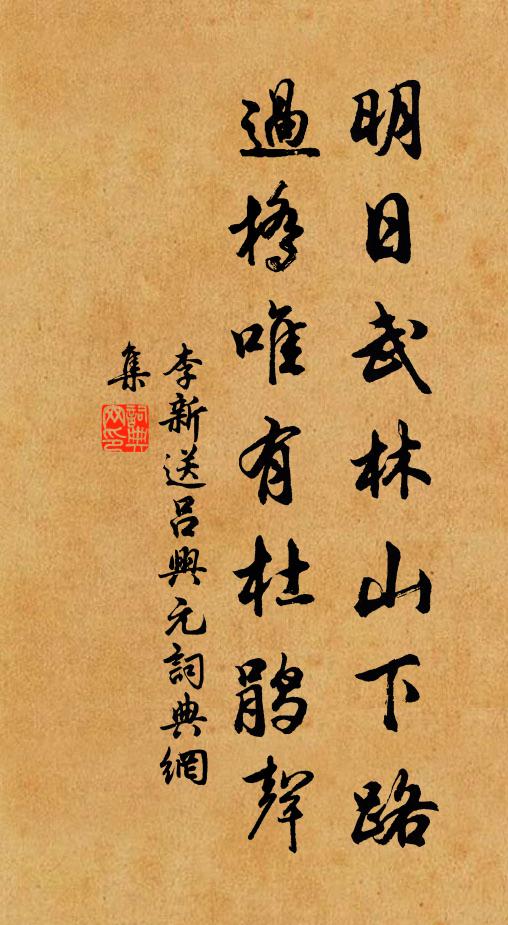 明日武林山下路
過橋唯有杜鵑聲
李新送呂興元詞典網
集
詞典
網印